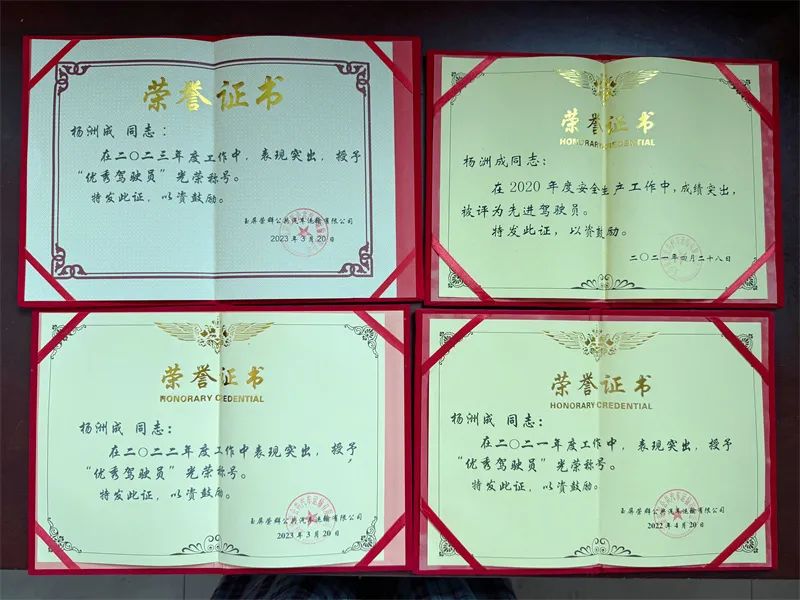 荣誉证书
杨洲成 同志：
在二〇二三年度工作中，表现突出，授予
“优秀驾驶员”光荣称号。
特发此证，以资鼓励。
玉屏荣群公共汽车运输有限公司
2023年3月20日
荣誉证书
HONORARY CREDENTIAL
杨洲成同志：
在2020年度安全生产工作中，成绩突出，
被评为先进驾驶员。
特发此证，以资鼓励。
二〇二一年四月二十八日
荣誉证书
HONORARY CREDENTIAL
杨洲成 同志：
在二〇二二年度工作中表现突出，授予
“优秀驾驶员”光荣称号。
特发此证，以资鼓励。
玉屏荣群公共汽车运输有限公司
2023年3月20日
荣誉证书
HONORARY CREDENTIAL
杨洲成 同志：
在二〇二一年度工作中，表现突出，授予
“优秀驾驶员”光荣称号。
特发此证，以资鼓励。
玉屏荣群公共汽车运输有限公司
2022年4月20日